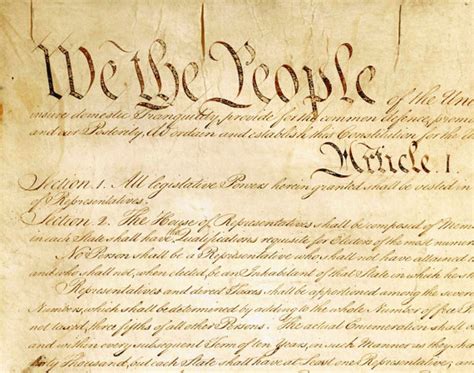 We the People of the Un
insure domestic Tranquility, provide for the common defence, promo
and our Posterity, do ordain and establish this Constitution for the
Article. I.
Section. 1. All legislative Powers herein granted shall be vested in
of Representatives.
Section. 2. The House of Representatives shall be composed of Mem
in each State shall have the Qualifications requisite for Electors of the most numer
No Person shall be a Representative who shall not have attained
and who shall not, when elected, be an Inhabitant of that State in which he
Representatives and direct Taxes shall be apportioned among the seve
Numbers, which shall be determined by adding to the whole Number of free
not taxed, three fifths of all other Persons. The actual Enumeration shall
and within every subsequent Term of ten Years, in such Manner as they
hirty Thousand, but each State shall have at Least one Representative; an